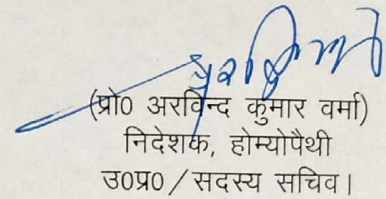 (प्रो0 अरविन्द कुमार वर्मा)
निदेशक, होम्योपैथी
उ0प्र0 / सदस्य सचिव।